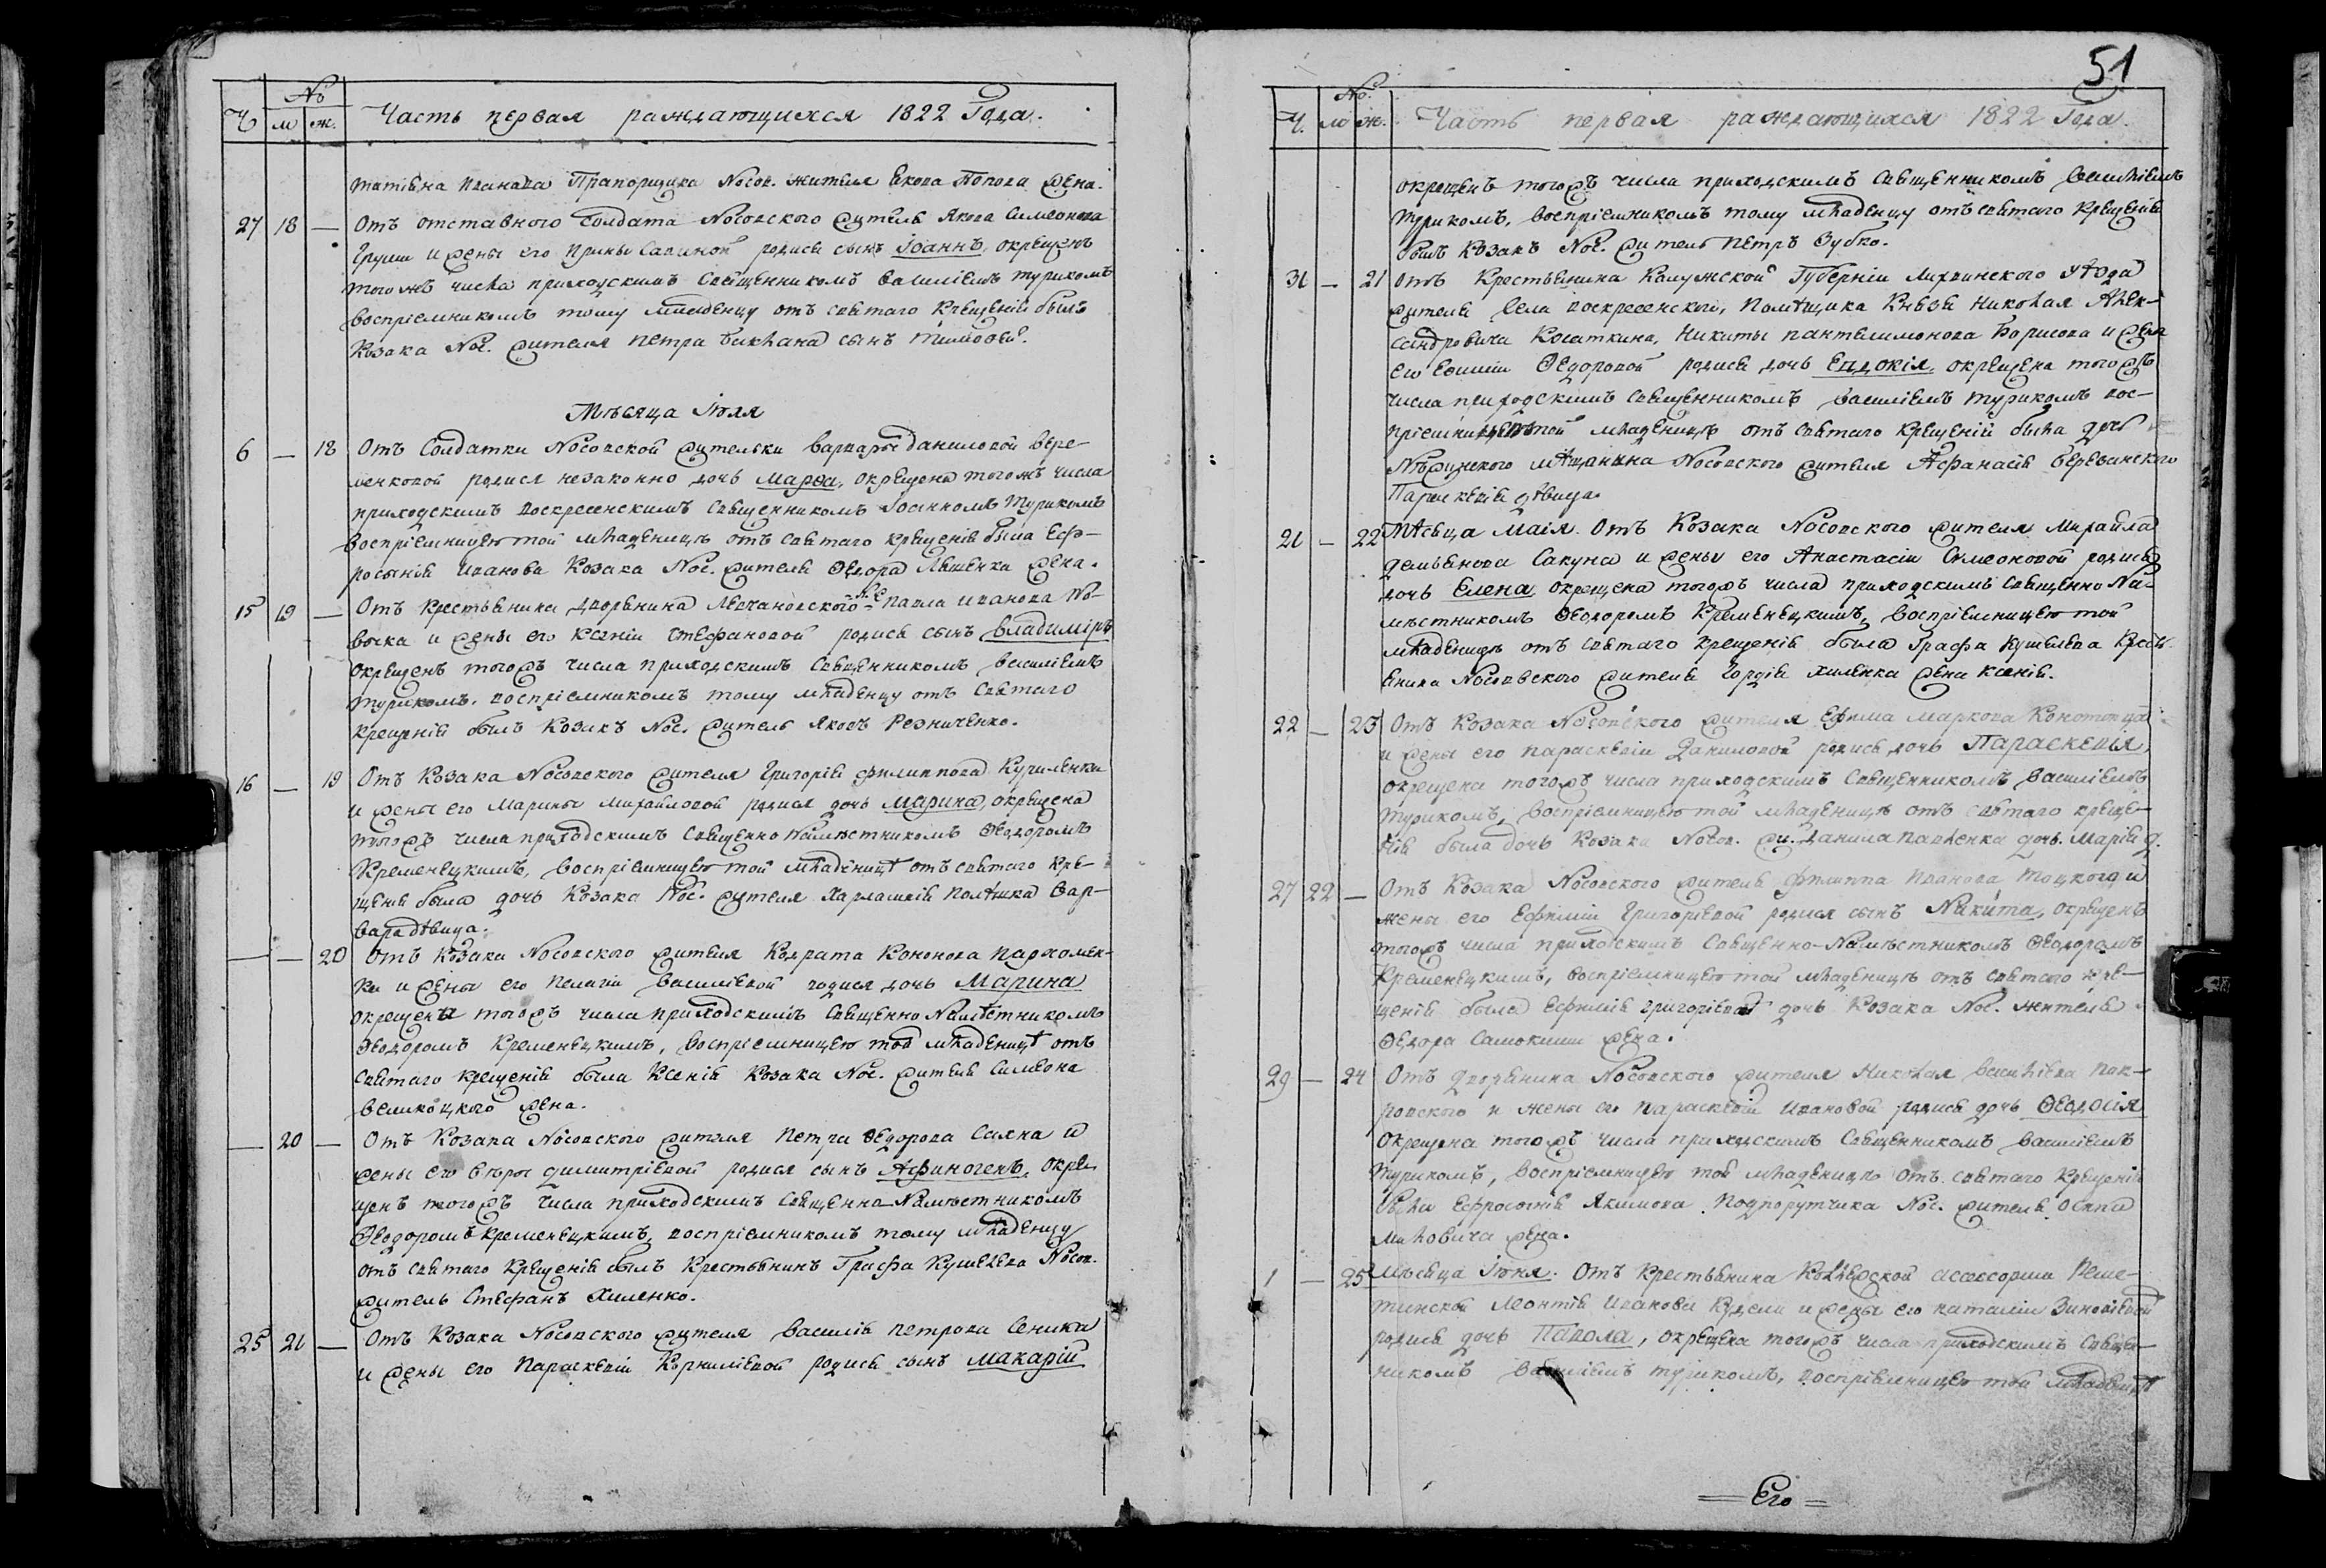 №
Ч м ж. Часть первая раждающихся 1822 Года.
татіана Иванова Прапорщика Носов. жителя Якова Попова жена.
27 18 — Отъ отставного Солдата Носовского жителя Якова Симеонова
Груши и жены его Ирины Савиной родися сынъ Іоаннъ, окрещенъ
того жъ числа приходскимъ Священникомъ Василіемъ Турикомъ
воспріемникомъ тому младенцу отъ святаго крещенія былъ
Козака Нос. жителя Петра сынъ Тимофей.
Мѣсяца Іюля
6 — 18 Отъ Солдатки Носовской жительки Варвары Даниловой Вере-
менковой родися незаконно дочь Марѳа, окрещена того жъ числа
приходскимъ Воскресенскимъ Священникомъ Іоанномъ Турикомъ
воспріемницею той младеницѣ отъ святаго крещенія была Евф-
росинія Иванова Козака Нос. жителя Ѳедора Ляшенка жена.
15 19 — Отъ Крестьянина Дворянина Лючановского Павла Иванова Но-
вика и жены его Ксеніи Стефановой родися сынъ Владиміръ
окрещенъ того жъ числа приходскимъ Священникомъ Василіемъ
Турикомъ, воспріемникомъ тому младенцу отъ святаго
крещенія былъ Козакъ Нос. житель Яковъ Резниченко.
16 — 19 Отъ Козака Носовского жителя Григорія Филиппова Куриленка
и жены его Марины Михайловой родися дочь Марина, окрещена
того жъ числа приходскимъ Священно Намѣстникомъ Ѳеодоромъ
Кременецкимъ, воспріемницею той младеницѣ отъ святаго кре-
щенія была дочь Козака Нос. жителя Харлампія Полѣшка Вар-
вара дѣвица.
— — 20 Отъ Козака Носовского жителя Кодрата Кононова Пархомен-
ка и жены его Пелагіи Василіевой родися дочь Марина
окрещена того жъ числа приходскимъ Священно Намѣстникомъ
Ѳеодоромъ Кременецкимъ, воспріемницею той младеницѣ отъ
святаго крещенія была Ксенія Козака Нос. жителя Симеона
Великоцкого жена.
— 20 — Отъ Козака Носовского жителя Петра Ѳедорова Саяна и
жены его Вѣры Димитріевой родися сынъ Афиногенъ, окре-
щенъ того жъ числа приходскимъ Священно Намѣстникомъ
Ѳеодоромъ Кременецкимъ, воспріемникомъ тому младенцу
отъ святаго крещенія былъ Крестьянинъ Графа Кушелева Носов.
житель Стефанъ Хиленко.
25 21 — Отъ Козака Носовского жителя Василія Петрова Сеника
и жены его Параскевіи Корниліевой родися сынъ Макарій
51
№.
Ч. м ж. Часть первая раждающихся 1822 Года.
окрещенъ того жъ числа приходскимъ Священникомъ Василіемъ
Турикомъ, воспріемникомъ тому младенцу отъ святаго крещенія
былъ Козакъ Нос. житель Петръ Зубко.
31 — 21 Отъ Крестьянина Калужской Губерніи Лихвинского уѣзда
жителя Села Воскресенского, Помѣщика Князя Николая Алек-
сандровича Касаткина, Никиты Пантелимонова Борисова и жены
его Ѳедоровой родися дочь Евдокія, окрещена того жъ
числа приходскимъ Священникомъ Василіемъ Турикомъ вос-
пріемницею той младеницѣ отъ святаго крещенія была дочь
Нѣжинского мѣщанина Носовского жителя Афанасія Березанского
Параскевія дѣвица.
21 — 22 Мѣсяца Маія. Отъ Козака Носовского жителя Михайла
Демьянова Сакуна и жены его Анастасіи Симеоновой родися
дочь Елена, окрещена того жъ числа приходскимъ Священно На-
мѣстникомъ Ѳеодоромъ Кременецкимъ, воспріемницею той
младеницѣ отъ святаго крещенія была Графа Кушелева Кресть-
янина Носовского жителя Гордія Хиленка жена Ксенія.
22 — 23 Отъ Козака Носовского жителя Ефима Маркова Конотопца
и жены его Параскевіи Даниловой родися дочь Параскевія,
окрещена того жъ числа приходскимъ Священникомъ Василіемъ
Турикомъ, воспріемницею той младеницѣ отъ святаго креще-
нія была дочь Козака Носов. жи. Данила Павленка дочь Марія д.
27 22 — Отъ Козака Носовского жителя Филиппа Иванова Тоцкого и
жены его Ефиміи Григоріевой родися сынъ Никита, окрещенъ
того жъ числа приходскимъ Священно-Намѣстникомъ Ѳеодоромъ
Кременецкимъ, воспріемницею той младеницѣ отъ святаго кре-
щенія была Ефимія Григоріева дочь Козака Нос. жителя
Ѳедора Самокиши жена.
29 — 24 Отъ Дворянина Носовского жителя Николая Василіева Пок-
ровского и жены его Параскевіи Ивановой родися дочь Ѳеодосія
окрещена того жъ числа приходскимъ Священникомъ Василіемъ
Турикомъ, воспріемницею той младеницѣ отъ святаго крещенія
была Ефросинія Якимова Подпорутчика Нос. жителя Осипа
жена.
1 — 25 Мѣсяца Іюня. Отъ Крестьянина Колѣжской ассесорши Реше-
тинской Леонтія Иванова и жены его Наталіи Зиновіевой
родися дочь Павола, окрещена того жъ числа приходскимъ Священ-
никомъ Василіемъ Турикомъ, воспріемницею той младеницѣ
= Его =